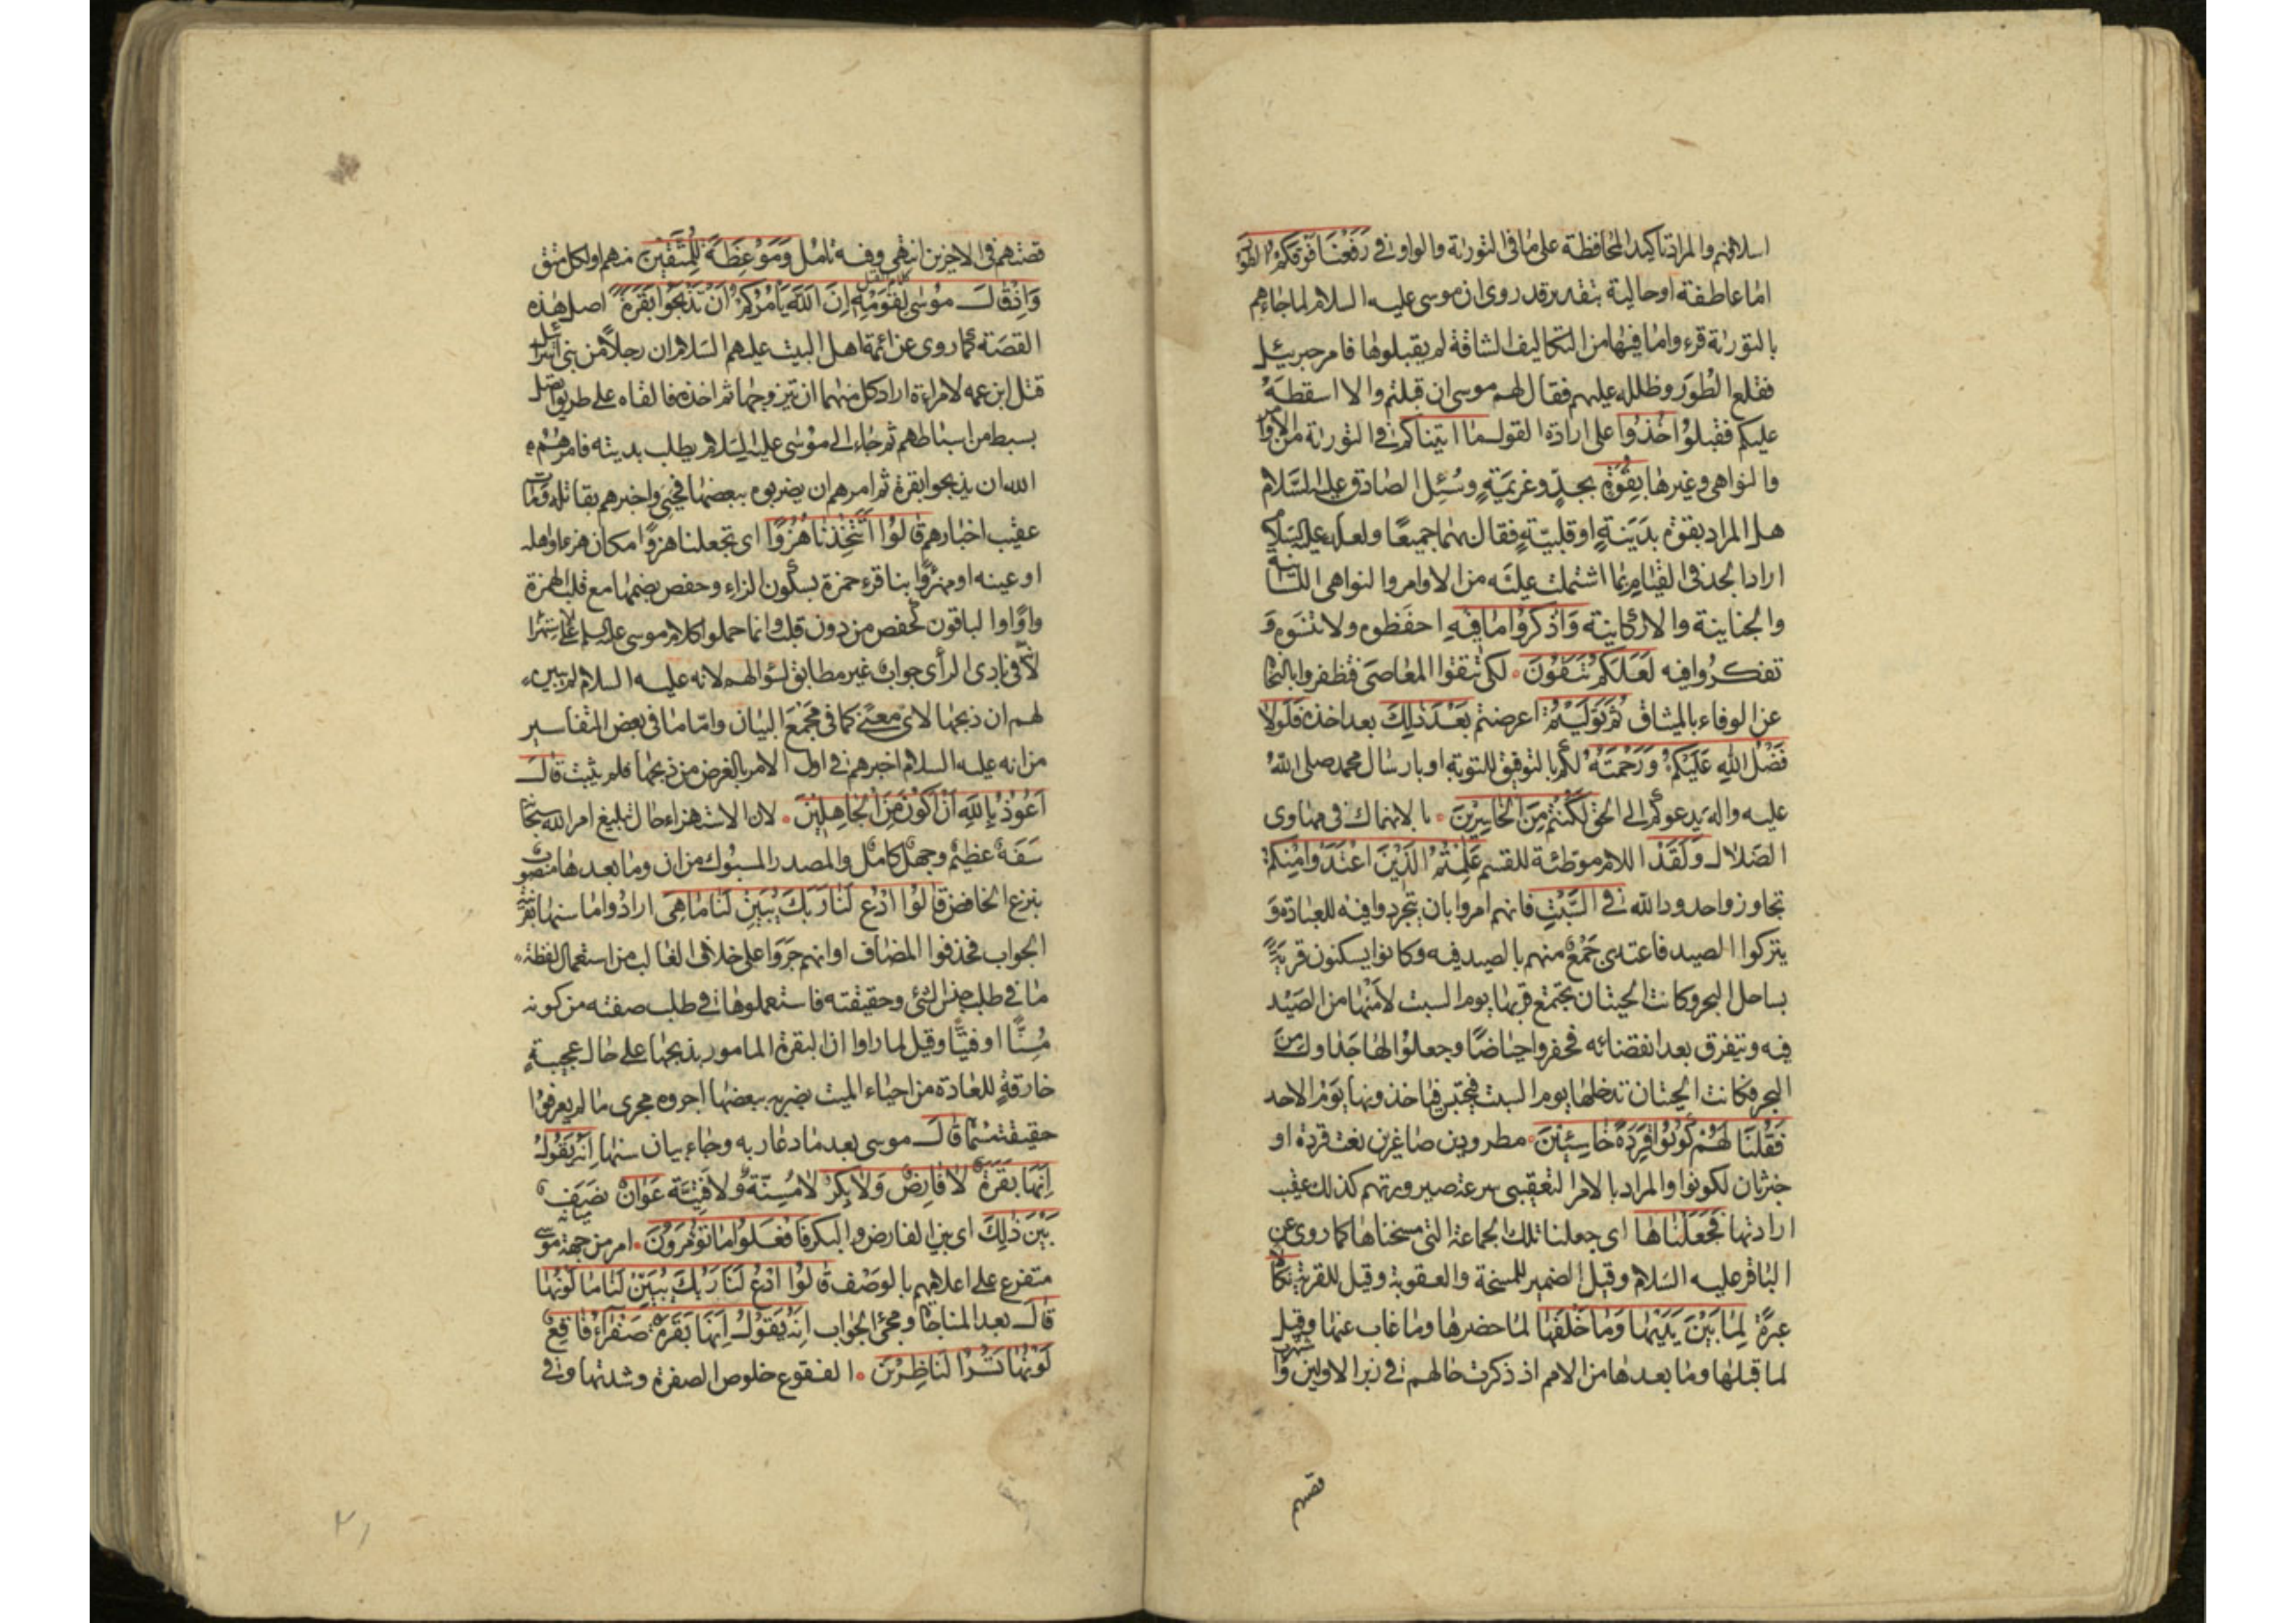 اسلافهم والمراد تاكيد المحافظة على ما فى التورية والواو فى وَرَفَعْنَا فَوْقَكُمُ الطُّورَ
اما عاطفة او حالية بتقدير قد روى ان موسى عليه السلام لما جاءهم
بالتورية قرءوا ما فيها من التكاليف الشاقة لم يقبلوها فامر جبرئيل
فقلع الطُّورَ وظلله عليهم فقال لهم موسى ان قبلتم والا اسقطه
عليكم فقبلوا خُذُوا على ارادة القول ما اتيناكم فى التورية من الاوامر
والنواهى وغيرها بِقُوَّةٍ بجدٍّ وعزيمةٍ وسُئِل الصادق عليه السَّلام
هل المراد بقوة بدَنيةٍ او قلبيّةٍ فقال بهما جميعًا ولعله عليه السلام
اراد الجد فى القيام بما اشتملت عليه من الاوامر والنواهى اللسانية
والجنانية والاركانية وَاذْكُرُوا مَا فِيهِ احفَظوه ولا تنسَوه وَ
تفكروا فيه لَعَلَّكُمْ تَتَّقُونَ لكى تتقوا المعاصى فتظفروا بالنجاة
عن الوفاء بالميثاق ثُمَّ تَوَلَّيْتُمْ اعرضتم بَعْدَ ذٰلِكَ بعد اخذه فَلَوْلَا
فَضْلُ اللهِ عَلَيْكُمْ وَرَحْمَتُهُ لكم بالتوفيق للتوبة او بارسال محمد صلى الله
عليه واله يدعوكم الى الحق لَكُنْتُمْ مِنَ الْخَاسِرِينَ بالانهماك فى مهاوى
الضلال وَلَقَدْ اللام موطئة للقسم عَلِمْتُمُ الَّذِينَ اعْتَدَوْا مِنْكُمْ
تجاوزوا حدود الله فِى السَّبْتِ فانهم امروا بان يتجردوا فيه للعبادة وَ
يتركوا الصيد فاعتدى جَمْعٌ منهم بالصيد فيه وكانوا يسكنون قريةً
بساحل البحر وكانت الحيتان تجتمع قربها يوم السبت لأمْنها من الصَيْد
فيه وتتفرق بعد انقضائه فحفروا حياضًا وجعلوا لها جداول من
البحر فكانت الحيتان تدخلها يوم السبت فيحتبس فياخذونها يَوْمَ الاحد
فَقُلْنَا لَهُمْ كُونُوا قِرَدَةً خَاسِئِينَ مطرودين صاغرين نعت قردة او
خبر ثان لكونوا والمراد بالامر التعقيبى سرعة صيرورتهم كذلك عقيب
ارادتها فَجَعَلْنَاهَا اى جعلنا تلك الجماعة التى مسخناها كما روى عن
الباقر عليه السلام وقيل الضمير للمسخة والعقوبة وقيل للقرية نَكَالًا
عبرةً لِمَا بَيْنَ يَدَيْهَا وَمَا خَلْفَهَا لما حضرها وما غاب عنها وقيل
لما قبلها وما بعدها من الامم اذ ذكرت حالهم فى زبر الاولين و
قصتهم
قصتهم فى الاخرين انتهى وفيه تامل وَمَوْعِظَةً لِلْمُتَّقِينَ منهم او لكل متق
وَاِذْ قَالَ مُوسٰى لِقَوْمِهِ اِنَّ اللهَ يَأْمُرُكُمْ اَنْ تَذْبَحُوا بَقَرَةً اصل هذه
القصة كما روى عن ائمة اهل البيت عليهم السَلام ان رجلاً من بنى اسرائيل
قتل ابن عمه لامراءة اراد كل منهما ان يتزوجها ثم اخذه فالقاه على طريق
بسبط من اسباطهم ثم جاء الى موسى عليه السَلام يطلب بديته فامرهم
الله ان يذبحوا بقرة ثم امرهم ان يضربوه ببعضها فيحيى واخبرهم بقاتله
عقيب اخبارهم قَالُوا اَتَتَّخِذُنَا هُزُوًا اى تجعلنا هزوًا مكان هزء او اهله
او عينه او مهزوًّا بنا قرء حمزة بسكون الزاء وحفص بضمها مع قلب الهمزة
واوًا والباقون كحفص من دون قلب وانما حملوا كلام موسى عليه السلام على الاستهزاء
لأنّه فى بادى الرأى جواب غير مطابق لسؤالهم لانه عليه السلام لم يبين
لهم ان ذبحها لاى معنى كما فى مجمع البيان وامّا ما فى بعض التفاسير
من انه عليه السلام اخبرهم فى اول الامر بالغرض من ذبحها فلم يثبت قَالَ
اَعُوذُ بِاللهِ اَنْ اَكُونَ مِنَ الْجَاهِلِينَ لان الاستهزاء حال تبليغ امر الله سبحانه
سَفَهٌ عظيم وجهل كامل والمصدر المسبوك من ان وما بعدها منصوب
بنزع الخافض قَالُوا ادْعُ لَنَا رَبَّكَ يُبَيِّنْ لَنَا مَا هِىَ ارادوا ما سنها بقرينة
الجواب فحذفوا المضاف او انهم جَرَوا على خلاف الغالب من استعمال لفظة
ما فى طلب جنس الشئ وحقيقته فاستعملوها فى طلب صفته من كونه
مُسِنًّا او فَتِيًّا وقيل لما راوا ان البقرة المامور بذبحها على حال عجيبةٍ
خارقةٍ للعادة من احياء الميت بضربه ببعضها اجروه مجرى ما لم يعرفوا
حقيقته قَالَ موسى بعد ما دعا ربه وجاء بيان سنها اِنَّهُ يَقُولُ
اِنَّهَا بَقَرَةٌ لَا فَارِضٌ وَلَا بِكْرٌ لا مُسِنّة ولا فَتِيَّة عَوَانٌ نَصَفٌ
بَيْنَ ذٰلِكَ اى بين الفارض والبكر فَافْعَلُوا مَا تُؤْمَرُونَ امر من جهة موسى
متفرع على اعلامهم بالوصْف قَالُوا ادْعُ لَنَا رَبَّكَ يُبَيِّنْ لَنَا مَا لَوْنُهَا
قَالَ بعد المناجاة ومجئ الجواب اِنَّهُ يَقُولُ اِنَّهَا بَقَرَةٌ صَفْرَاءُ فَاقِعٌ
لَوْنُهَا تَسُرُّ النَّاظِرِينَ الفقوع خلوص الصفرة وشدتها وفى
٢١